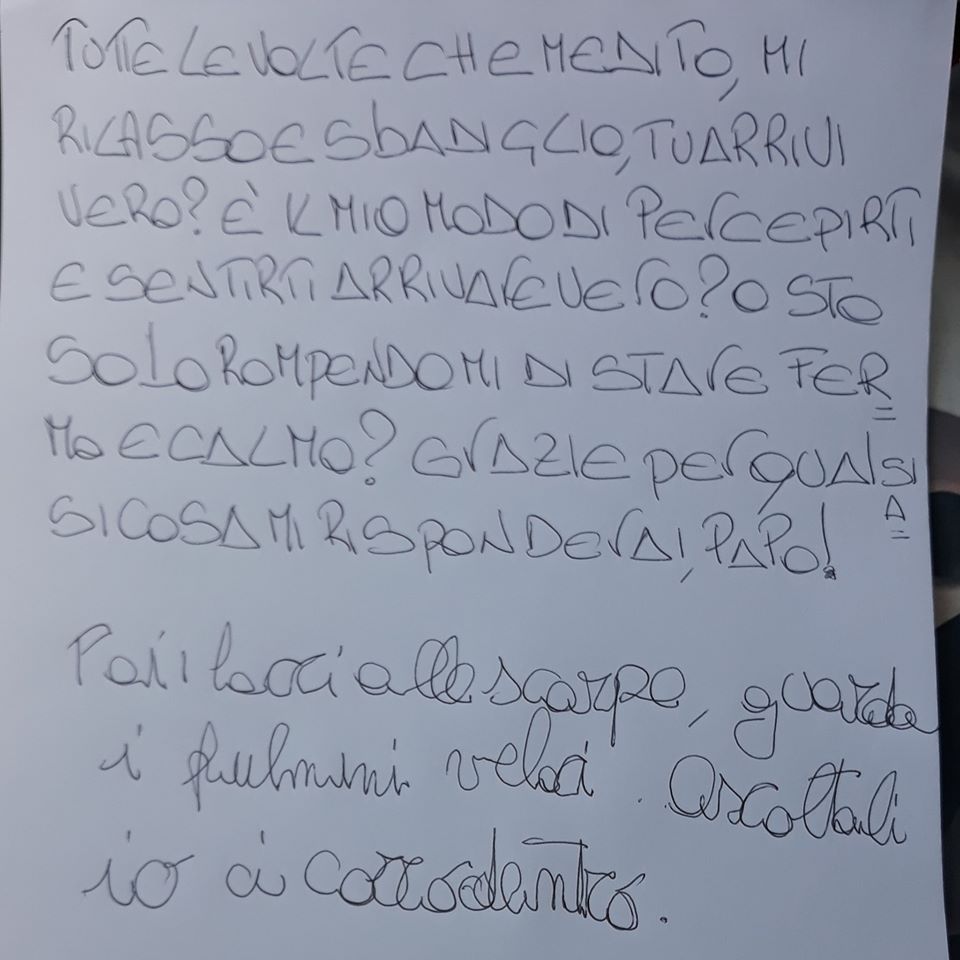 TUTTE LE VOLTE CHE MENTO, MI
RILASSO E SBADIGLIO, TU ARRIVI
VERO? È IL MIO MODO DI PERCEPIRTI
E SENTIRTI ARRIVARE VERO? O STO
SOLO ROMPENDOMI DI STARE FER=
MO E CALMO? GRAZIE PER QUALSI
A=
SI COSA MI RISPONDERAI, PAPO!
Fai i lacci alle scarpe, guarda
i fulmini veloci. Ascoltali
io ci corro dentro.